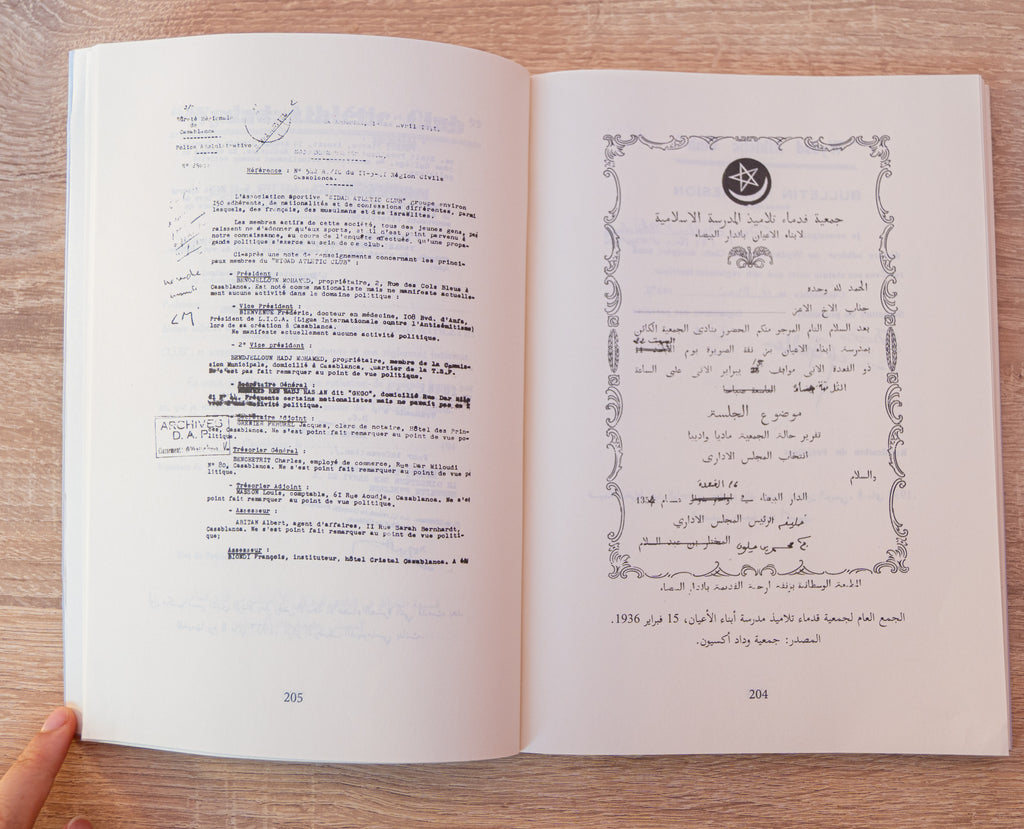 جمعية قدماء تلاميذ المدرسة الاسلامية
لابناء الاعيان بالدار البيضاء
الحمد لله وحده
جناب الاخ الاعز
بعد السلام التام المرجو منكم الحضور بنادى الجمعية الكائن
بمدرسة ابناء الاعيان من زنقة الصويرة يوم
ذو القعدة الاتي موافق 15 يبراير الاتى على الساعة
موضوع الجلسة
تقرير حالة الجمعية ماديا وادبيا
انتخاب المجلس الادارى
والسلام
16 القعدة
الدار البيضاء في 1354
الرئيس المجلس الاداري
المختار بن عبد السلام
المطبعة الوسطانية بزنقة ارحة القديمة بالدار البيضاء
الجمع العام لجمعية قدماء تلاميذ مدرسة أبناء الأعيان، 15 فبراير 1936.
المصدر: جمعية وداد أكسيون.
204
Sûreté Régionale
de
Casablanca
Police Administrative
Référence : N° du Région Civile
Casablanca.
L'Association sportive "WIDAD ATLETIC CLUB" groupe environ
150 adhérents, de nationalités et de confessions différentes, parmi
lesquels, des français, des musulmans et des israélites.
Les membres actifs de cette société, tous des jeunes gens, pa-
raissent ne s'adonner qu'aux sports, et il n'est point parvenu à
notre connaissance, au cours de l'enquête effectuée, qu'une propa-
gande politique s'exerce au sein de ce club.
Ci-après une note de renseignements concernant les princi-
paux membres du "WIDAD ATLETIC CLUB" :
- Président :
BENDJELLOUN MOHAMED, propriétaire, 2, Rue des Cols Bleus à
Casablanca. Est noté comme nationaliste mais ne manifeste actuelle-
ment aucune activité dans le domaine politique :
- Vice Président :
BIENVENUE Frédéric, docteur en médecine, 108 Bvd. d'Anfa,
Président de L.I.C.A. (Ligue Internationale contre l'Antisémitisme)
lors de sa création à Casablanca.
Ne manifeste actuellement aucune activité politique.
- 2° Vice président :
BENDJELLOUN HADJ MOHAMED, propriétaire, membre de la Commis-
sion Municipale, domicilié à Casablanca, quartier de la T.S.F.
Ne s'est pas fait remarquer au point de vue politique.
- Secrétaire Général :
HADJ HASSAN dit "GEGO", domicilié Rue Dar Milo
di N° 44. Fréquente certains nationalistes mais ne paraît pas
activité politique.
- Secrétaire Adjoint :
Jacques, clerc de notaire, Hôtel des Prin-
ces, Casablanca. Ne s'est point fait remarquer au point de vue po-
litique.
ARCHIVES
D. A. P.
- Trésorier Général :
BENCHETRIT Charles, employé de commerce, Rue Dar Miloudi
N° 80, Casablanca. Ne s'est point fait remarquer au point de vue po
litique.
- Trésorier Adjoint :
MASSON Louis, comptable, 61 Rue Aoudja, Casablanca. Ne s'es
point fait remarquer au point de vue politique.
- Assesseur :
ARITAN Albert, agent d'affaires, 11 Rue Sarah Bernhardt,
Casablanca. Ne s'est point fait remarquer au point de vue politi-
que;
Assesseur :
BIONDI François, instituteur, hôtel Cristel Casablanca. A
205